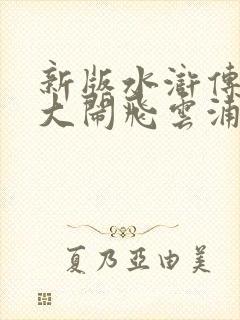 新版水滸傳
大鬧飛雲浦
夏乃亞由美